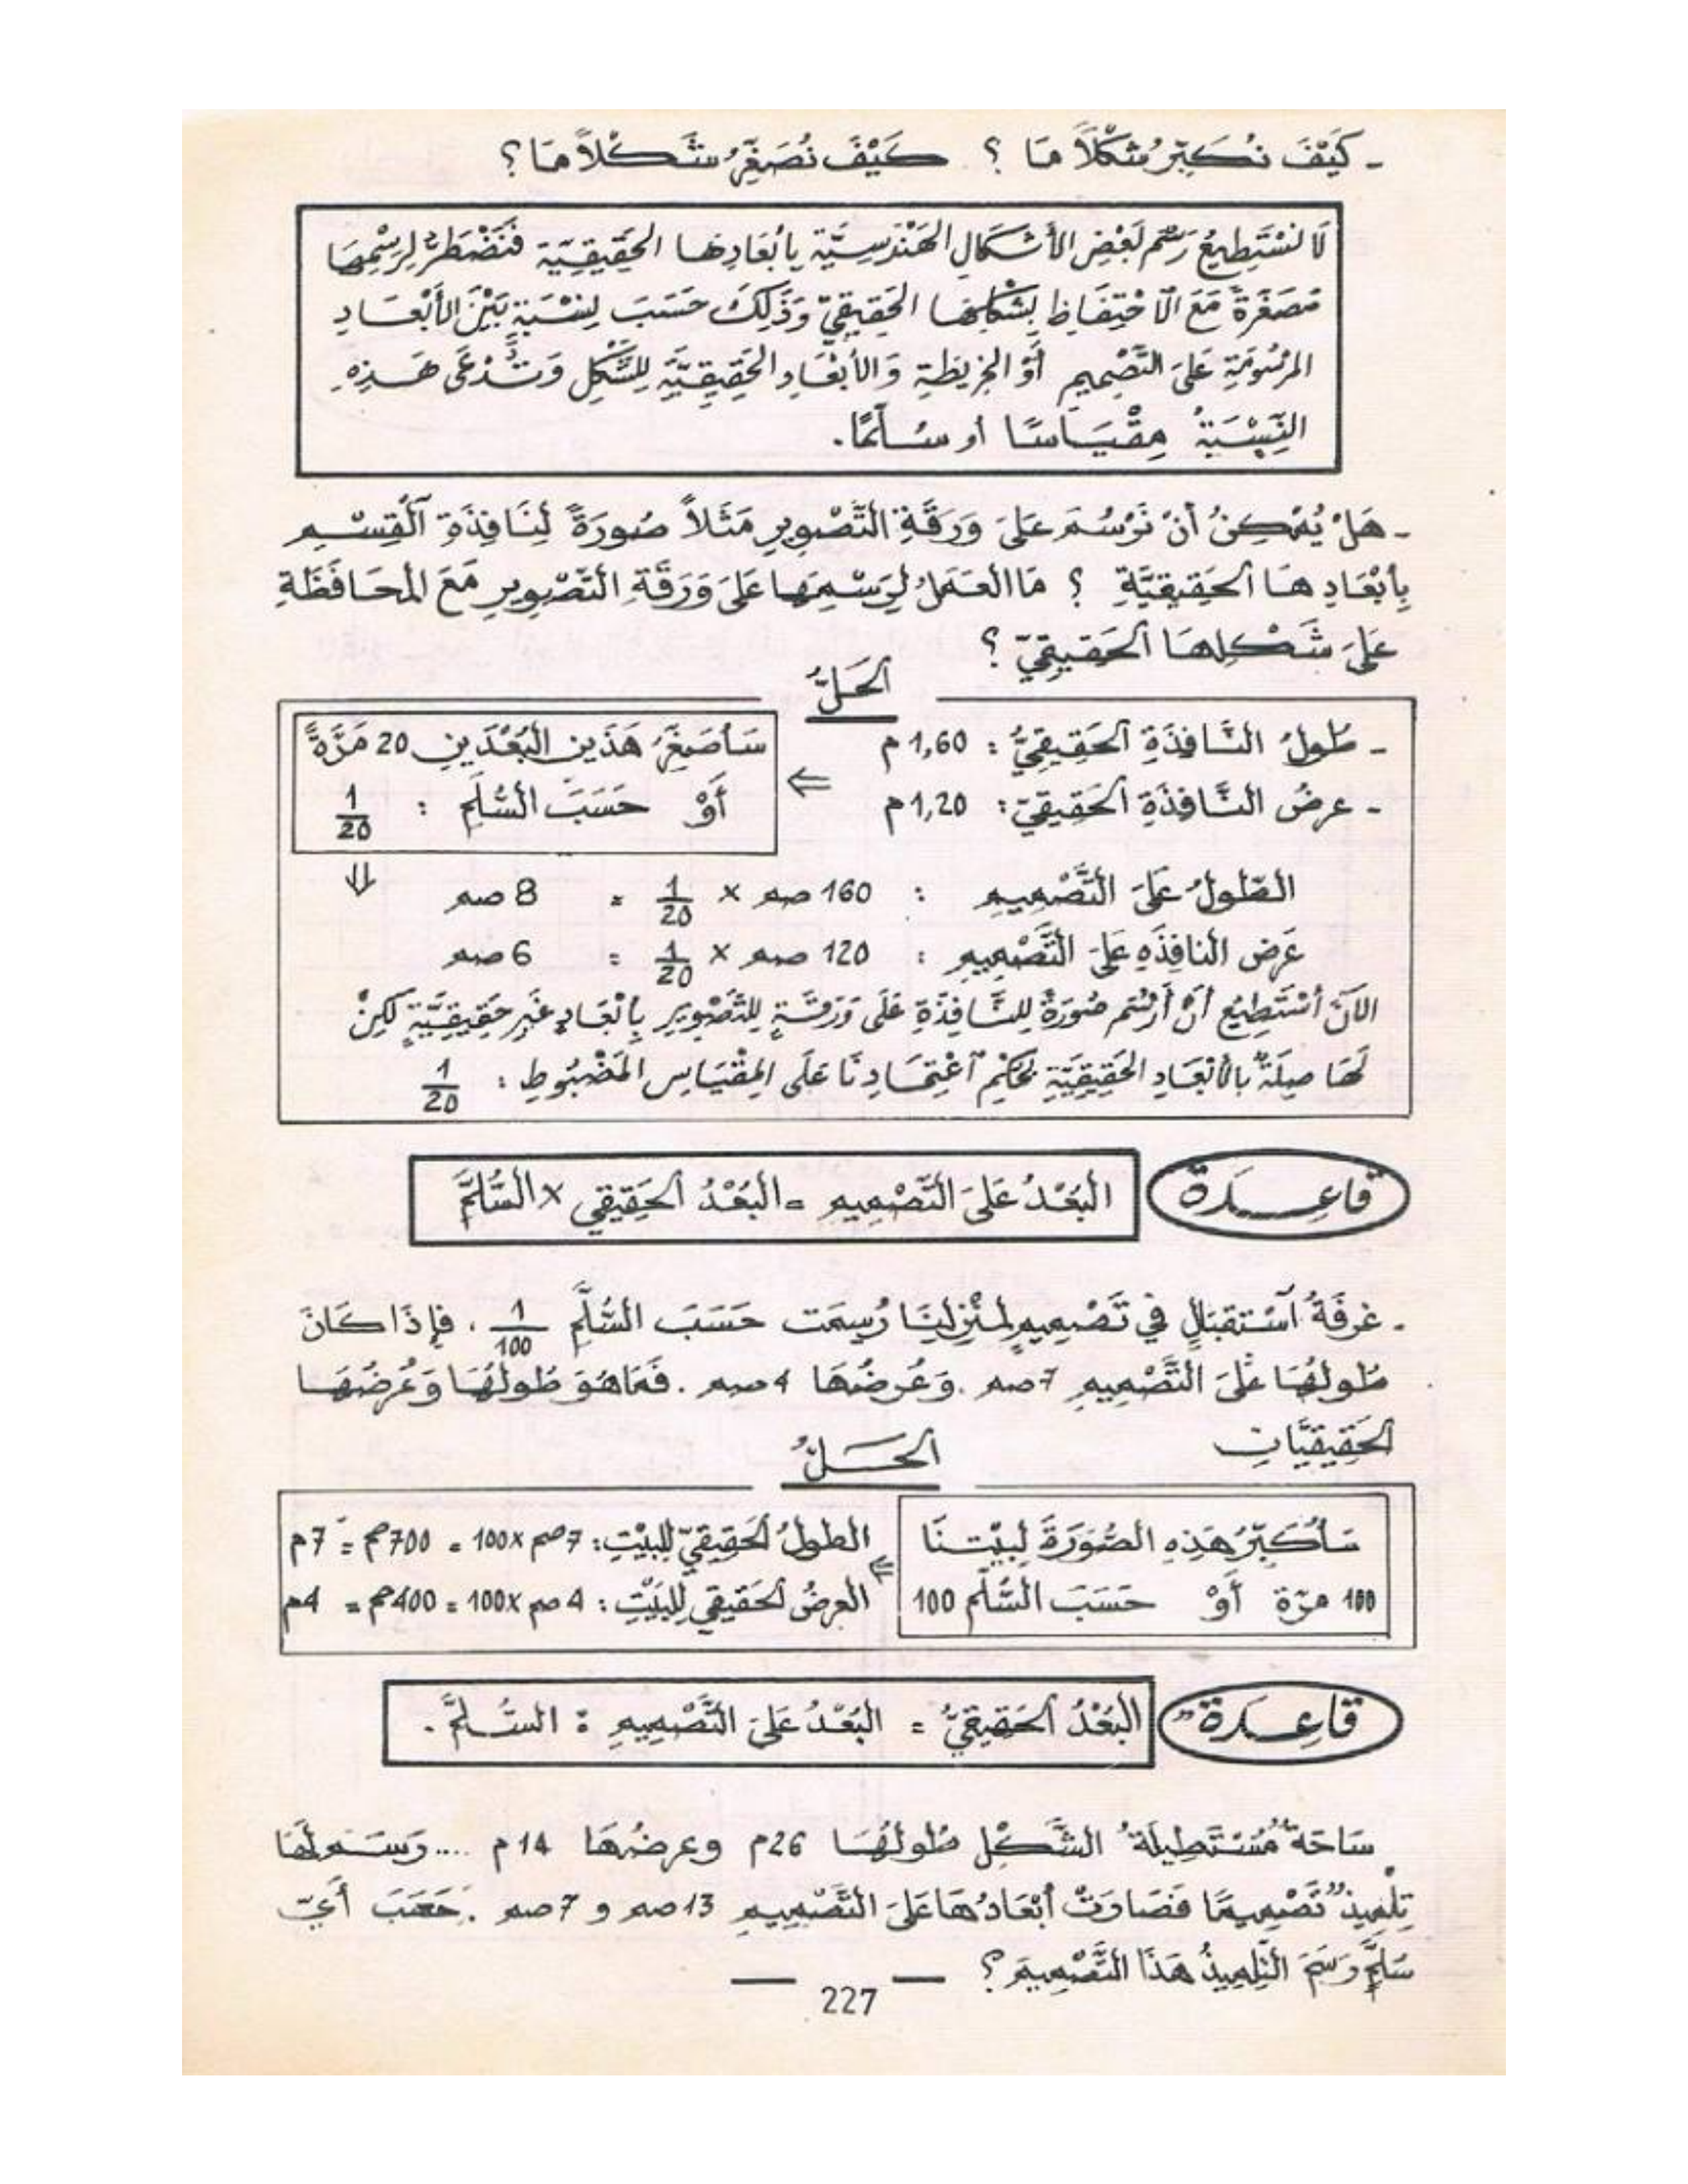 - كَيْفَ نُكَبِّرُ شَكْلاً مَا ؟ كَيْفَ نُصَغِّرُ شَكْلاً مَا ؟
لَا نَسْتَطِيعُ رَسْمَ بَعْضِ الأَشْكَالِ الهَنْدَسِيَّةِ بِأَبْعَادِهَا الحَقِيقِيَّةِ فَنَضْطَرُّ لِرَسْمِهَا
مُصَغَّرَةً مَعَ الْاحْتِفَاظِ بِشَكْلِهَا الحَقِيقِيِّ وَذَلِكَ حَسَبَ نِسْبَةٍ بَيْنَ الأَبْعَادِ
المَرْسُومَةِ عَلَى التَّصْمِيمِ أَوْ الخَرِيطَةِ وَالأَبْعَادِ الحَقِيقِيَّةِ لِلشَّكْلِ وَتُدْعَى هَذِهِ
النِّسْبَةُ مِقْيَاسًا أو سُلَّمًا.
- هَلْ يُمْكِنُ أَنْ نَرْسُمَ عَلَى وَرَقَةِ التَّصْوِيرِ مَثَلاً صُورَةً لِنَافِذَةِ ٱلْقِسْمِ
بِأَبْعَادِهَا ٱلحَقِيقِيَّةِ ؟ مَا العَمَلُ لِرَسْمِهَا عَلَى وَرَقَةِ التَّصْوِيرِ مَعَ المُحَافَظَةِ
عَلَى شَكْلِهَا ٱلحَقِيقِيِّ ؟
ٱلحَلُّ
- طُولُ النَّافِذَةِ ٱلحَقِيقِيُّ : 1,60 م ⇐ سَأُصَغِّرُ هَذَيْنِ البُعْدَيْنِ 20 مَرَّةً
- عرضُ النَّافِذَةِ ٱلحَقِيقِيّ : 1,20 م أَوْ حَسَبَ السُّلَّمِ : 1/20
⇓
الطّولُ عَلَى التَّصْمِيمِ : 160 صم × 1/20 = 8 صم
عَرض النافِذَهِ عَلَى التَّصْمِيمِ : 120 صم × 1/20 = 6 صم
الآنَ أَسْتَطِيعُ أَنْ أَرْسُمَ صُورَةً لِلنَّافِذَةِ عَلَى وَرَقَةٍ لِلتَّصْوِيرِ بِأَبْعَادٍ غَيْرِ حَقِيقِيَّةٍ لَكِنْ
لَهَا صِلَةٌ بِالأَبْعَادِ الحَقِيقِيَّةِ بِحُكْمِ ٱعْتِمَادِنَا عَلَى المِقْيَاسِ المَضْبُوطِ : 1/20
قاعِدة
البُعْدُ عَلَى التَّصْمِيمِ = البُعْدُ ٱلحَقِيقِي × السُّلَّمَ
- غرفَةُ ٱسْتقبَالٍ في تَصْمِيمٍ لِمَنْزِلِنَا رُسِمَت حَسَبَ السُّلَّمِ 1/100 . فإِذَا كَانَ
طُولُهَا عَلَى التَّصْمِيمِ 7 صم . وَعُرضُهَا 4 صم . فَمَا هُوَ طُولُهَا وَعُرضُهَا
ٱلحَقِيقِيَّانِ
ٱلحَلُّ
سَأُكَبِّرُ هَذِهِ الصُّورَةَ لِبيْتِنَا ⇐ الطولُ ٱلحَقِيقِيّ لِلبيْتِ : 7 صم × 100 = 700 صم = 7 م
100 مرّة أَوْ حَسَبَ السُّلَّمِ 100 العرضُ ٱلحَقِيقِي لِلبَيْتِ : 4 صم × 100 = 400 صم = 4 م
قَاعِدةٌ
البُعْدُ ٱلحَقِيقِيُّ = البُعْدُ عَلَى التَّصْمِيمِ : السُّلَّمَ .
سَاحَةٌ مُسْتَطِيلَةُ الشَّكْلِ طُولُهَا 26 م وعرضُهَا 14 م .... رَسَمَ لَهَا
تِلْمِيذٌ تَصْمِيمًا فَصَارَتْ أَبْعَادُهَا عَلَى التَّصْمِيمِ 13 صم و 7 صم . حَسَبَ أَيِّ
سُلَّمٍ رَسَمَ التِّلمِيذُ هَذَا التَّصْمِيمَ ؟
— 227 —